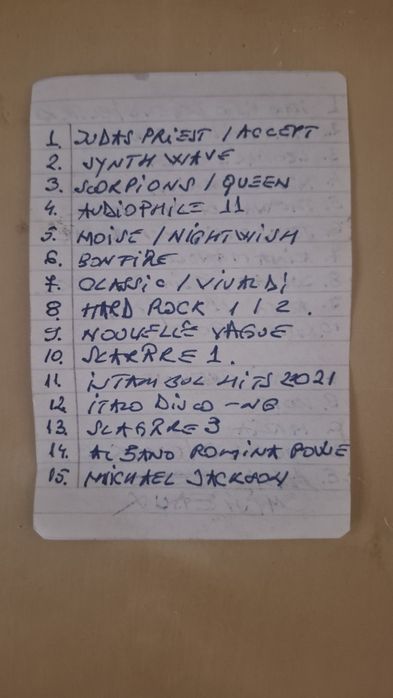 1. JUDAS PRIEST / ACCEPT
2. SYNTH WAVE
3. SCORPIONS / QUEEN
4. AUDIOPHILE 11
5. MOISE / NIGHTWISH
6. BONFIRE
7. CLASSIC / VIVALDI
8 HARD ROCK 1 / 2.
9. NOUVELLE VAGUE
10. SLAGRRE 1.
11 İSTAMBUL HITS 2021
12. İTALO DISCO - NG
13. SLAGRRE 3
14. ALBANO ROMINA POWE
15. MICHAEL JACKSON